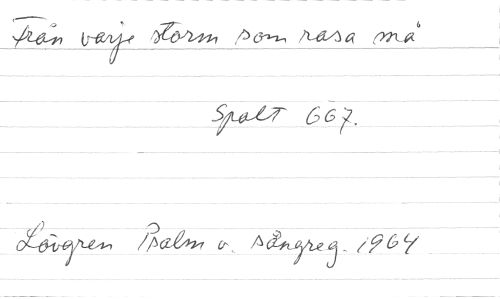 Från varje storm som rasa må
Spalt 667.
Lövgren Psalm o. sångreg. 1964